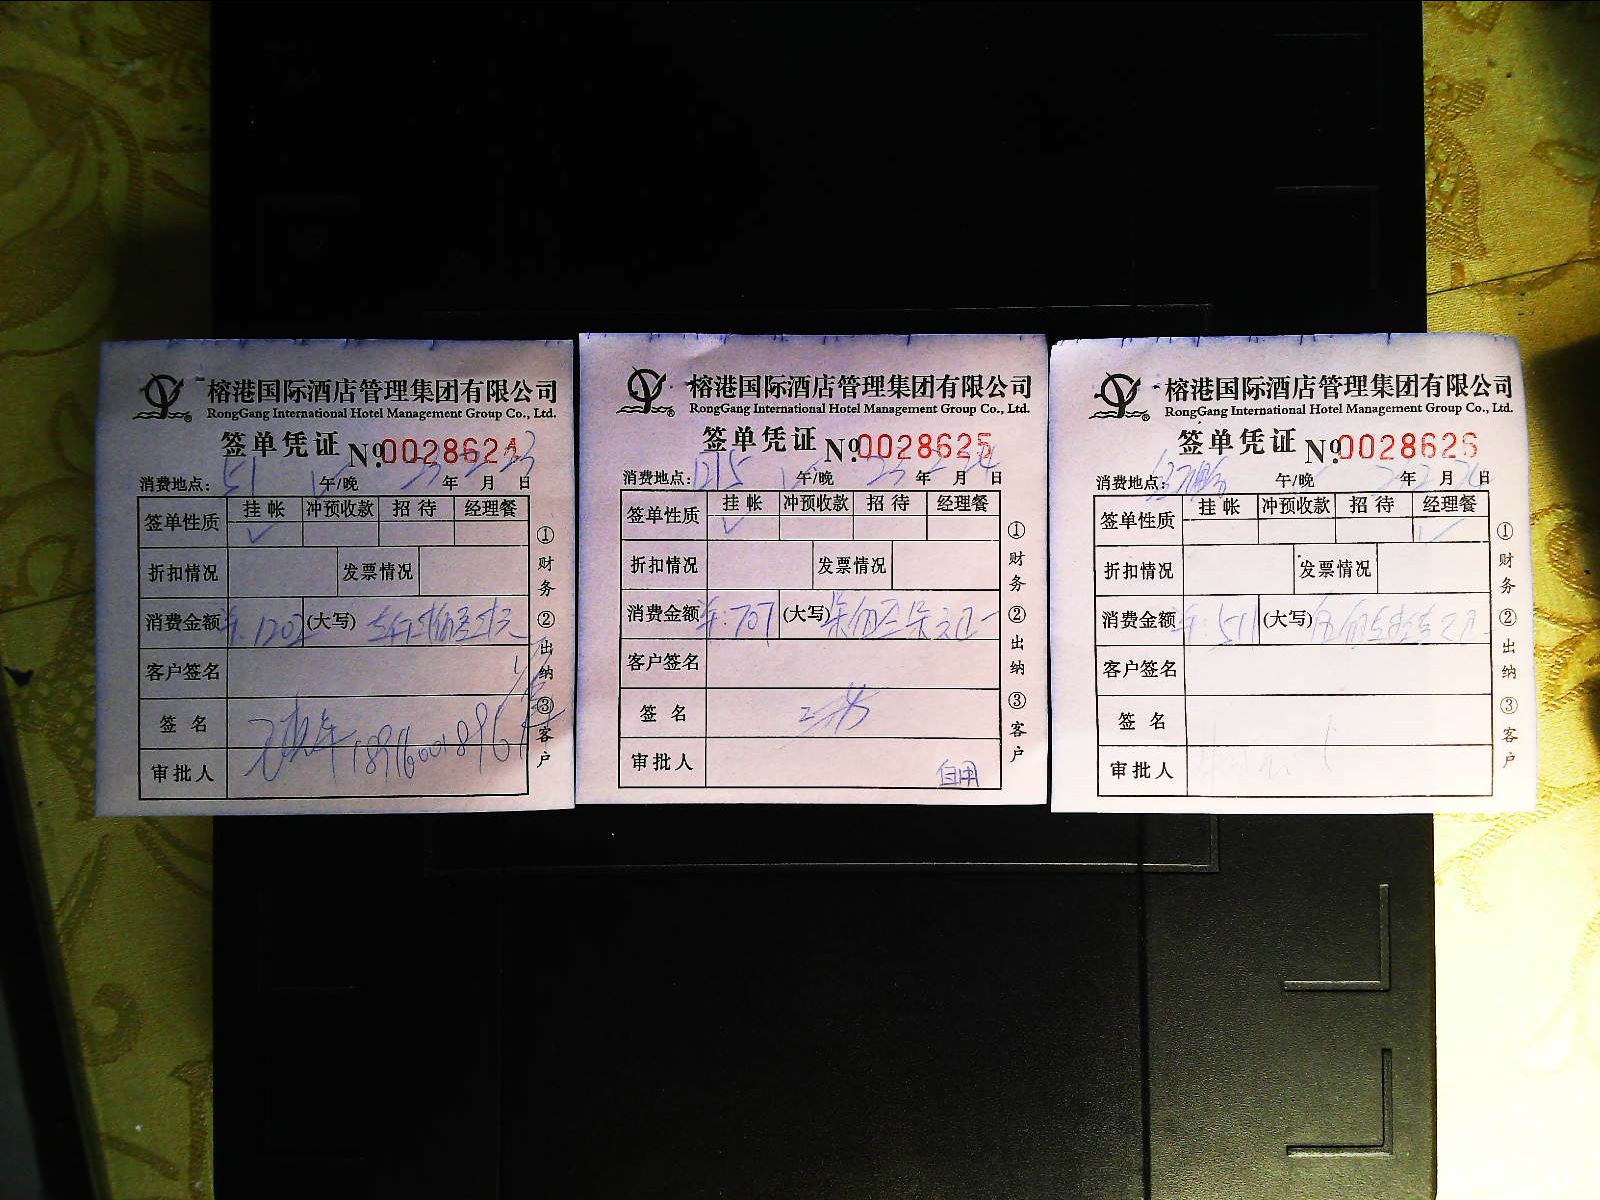 榕港国际酒店管理集团有限公司
RongGang International Hotel Management Group Co., Ltd.
签单凭证 No.0028624
消费地点: 51 午/晚 年 月 日
签单性质 挂帐 冲预收款 招待 经理餐
✓
折扣情况 发票情况
消费金额 1202 (大写)
客户签名
签名
审批人
①财务 ②出纳 ③客户
榕港国际酒店管理集团有限公司
RongGang International Hotel Management Group Co., Ltd.
签单凭证 No.0028625
消费地点: 1215 午/晚 年 月 日
签单性质 挂帐 冲预收款 招待 经理餐
✓
折扣情况 发票情况
消费金额 707 (大写)
客户签名
签名
审批人 自用
①财务 ②出纳 ③客户
榕港国际酒店管理集团有限公司
RongGang International Hotel Management Group Co., Ltd.
签单凭证 No.0028626
消费地点: 午/晚 年 月 日
签单性质 挂帐 冲预收款 招待 经理餐
✓
折扣情况 发票情况
消费金额 511 (大写)
客户签名
签名
审批人
①财务 ②出纳 ③客户